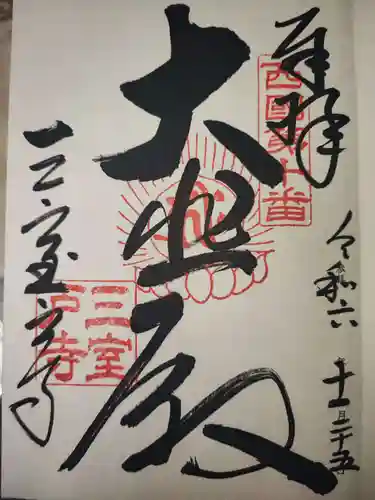 奉拝
西國第十番
令和六
十一月二十五
大悲殿
三室戸寺
三室
戸寺